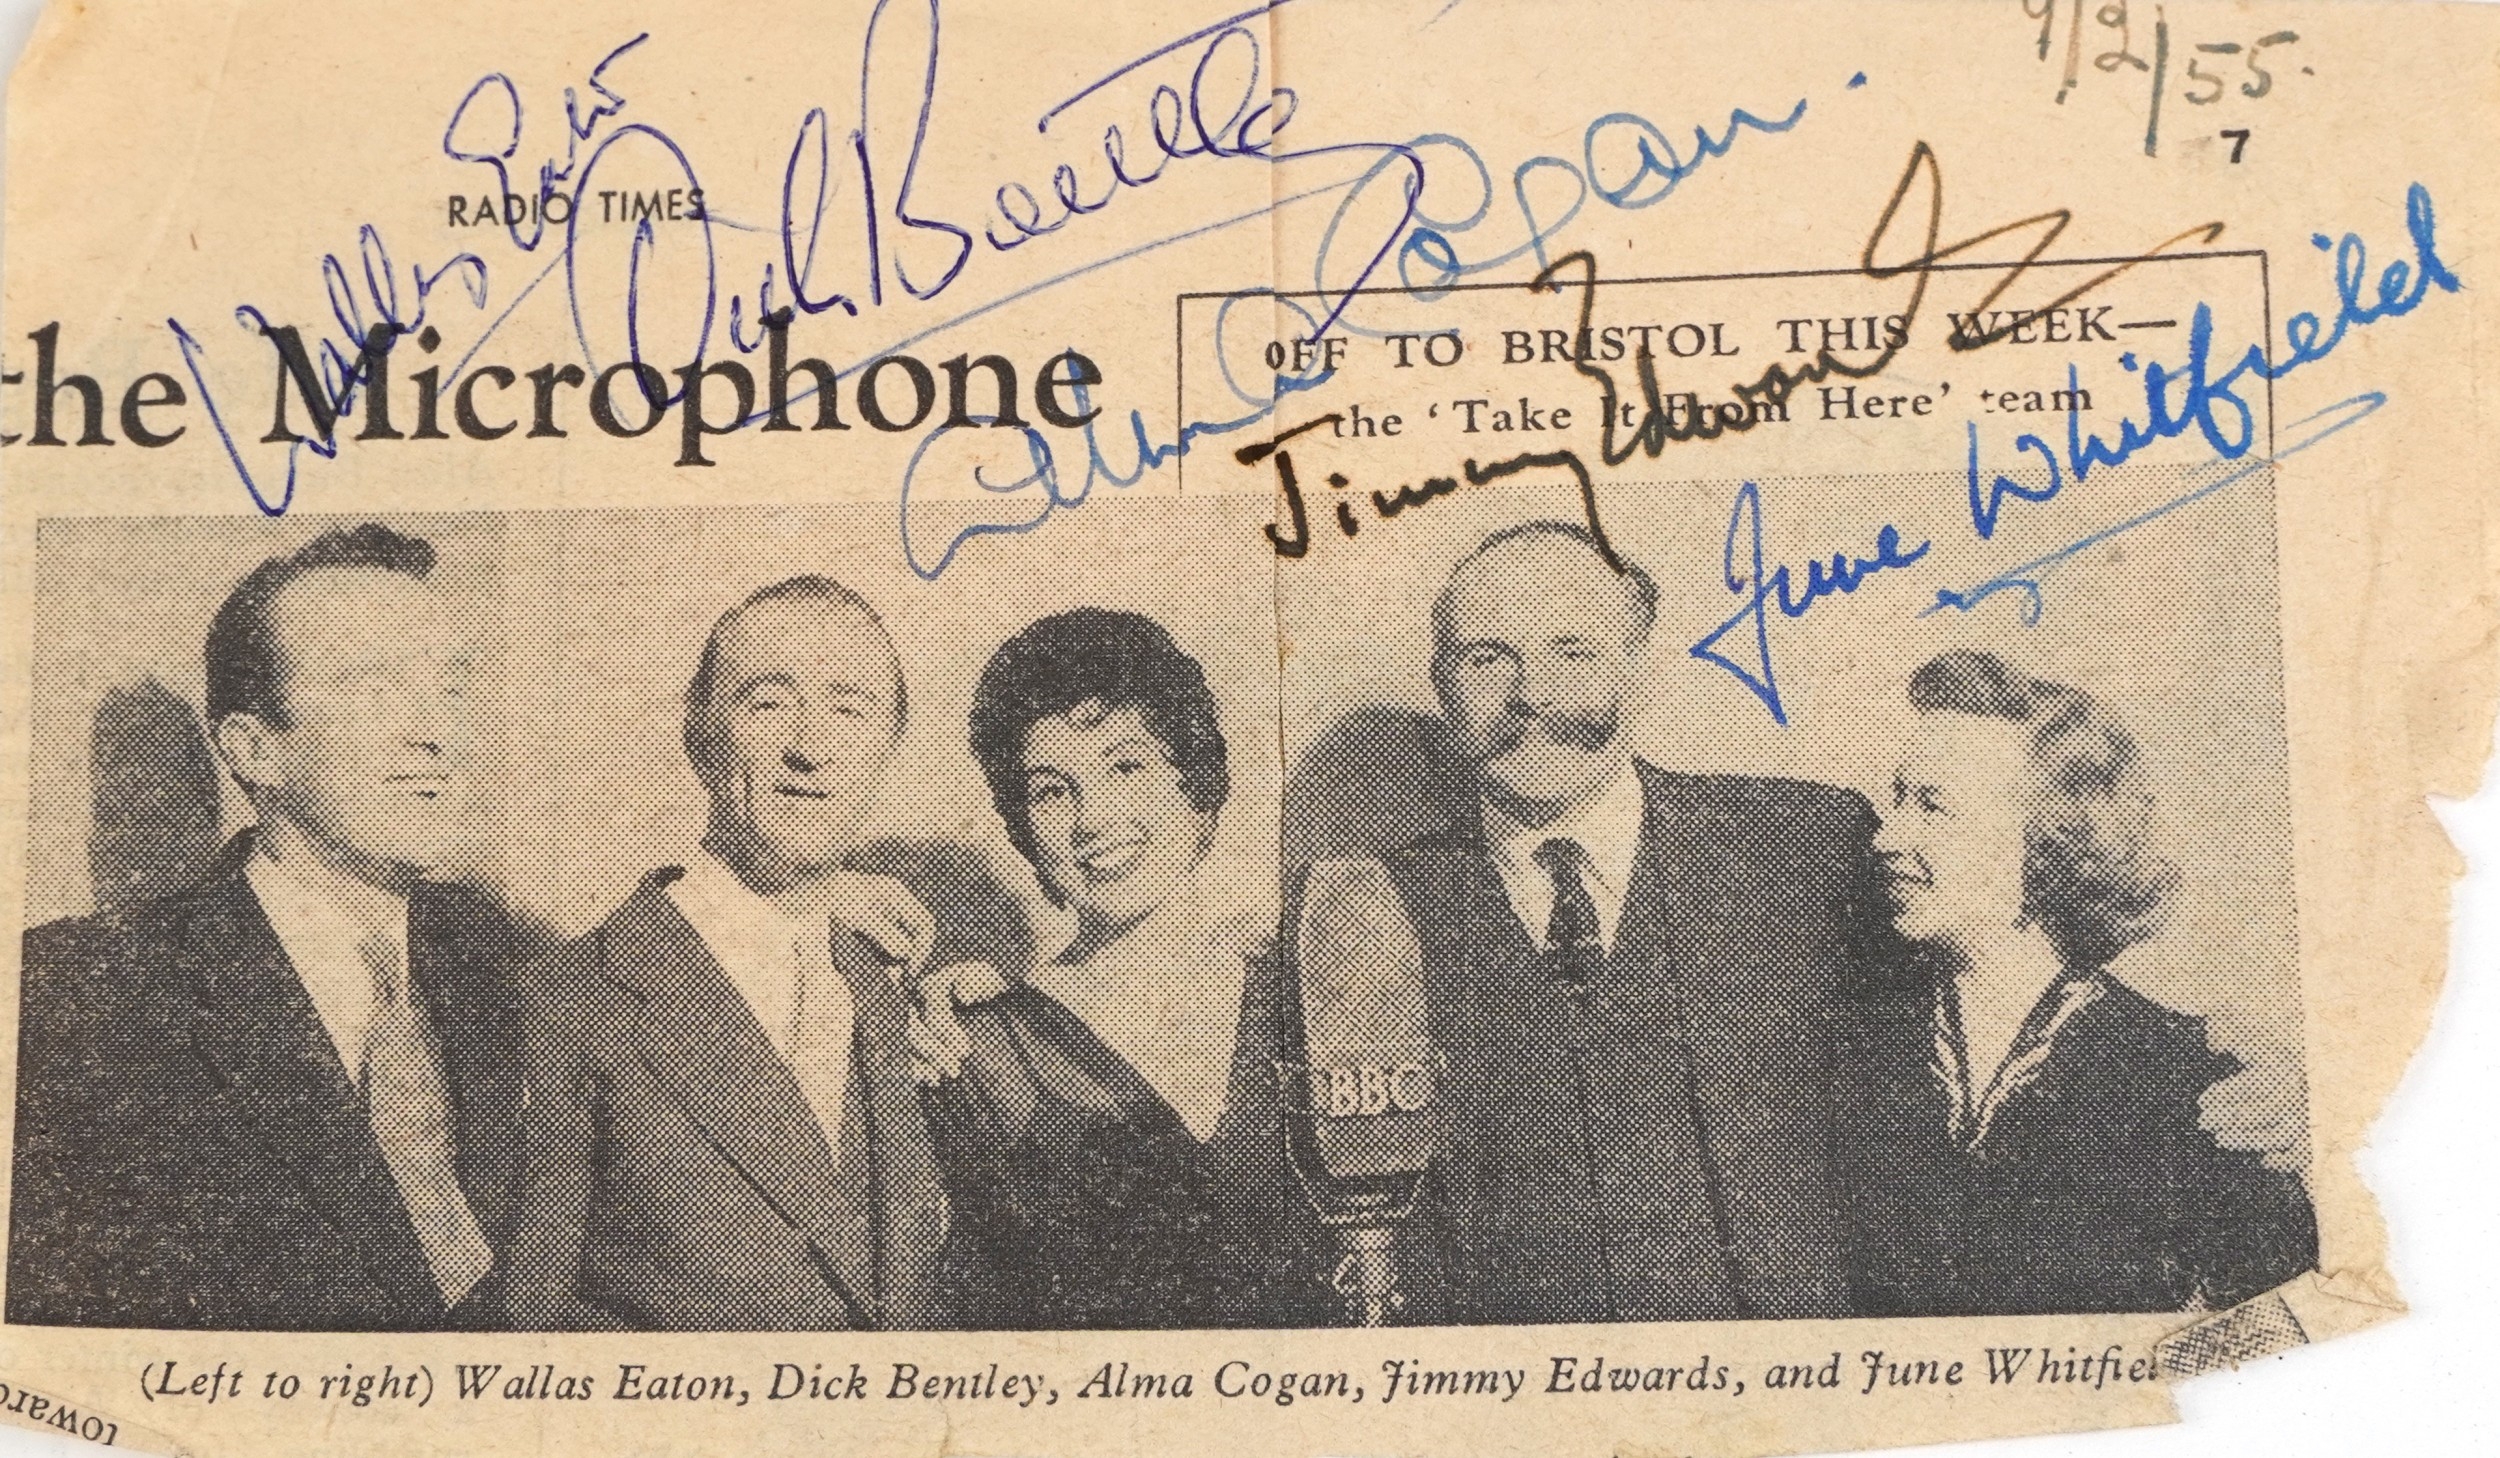 9/2/55.
7
RADIO TIMES
Wallas Eaton
Dick Bentley
Alma Cogan.
the Microphone
OFF TO BRISTOL THIS WEEK—
the ‘Take It From Here’ team
Jimmy Edwards
June Whitfield
BBC
(Left to right) Wallas Eaton, Dick Bentley, Alma Cogan, Jimmy Edwards, and June Whitfiel
towar